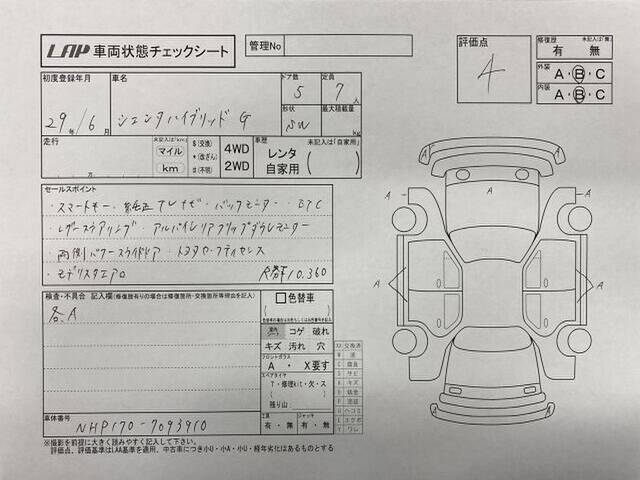 LAP 車両状態チェックシート
管理No
評価点
4
修復歴 未記入は「無」
有・無
外装 A・B・C
内装 A・B・C
初度登録年月
29年/6月
車名
シエンタハイブリッド G
ドア数
5
定員
7人
形状
SW
最大積載量
kg
走行
未記入は「km」
マイル
km
$(交換)
*(改ざん)
#(不明)
4WD
2WD
車歴 未記入は「自家用」
レンタ
自家用
セールスポイント
・スマートキー ・純正TVナビ ・バックモニター ・ETC
・レザーステアリング ・アルパインリアフリップダウンモニター
・両側パワースライドドア ・トヨタセーフティセンス
・モデリスタエアロ R券下10.360
検査・不具合 記入欄(修復歴有りの場合は修復箇所・交換箇所等様由を記入)
各A
色替車
室内
シート
コゲ 破れ
キズ 汚れ 穴
フロントガラス
A ・ X要す
スペアタイヤ
T・修理kit・欠・ス
残り山
工具
有・無
ジャッキ
有・無
XX 交換済
W 波
C 腐食
S サビ
A キズ
U ヘコミ
Y ワレ
車体番号
NHP170-7093910
A
A
A
A
A
A
A
※撮影を前提に大きく読みやすく記入して下さい。
評価点、評価基準はLAA基準を適用、中古車につき小U・小A・小U・経年劣化はあるものとする